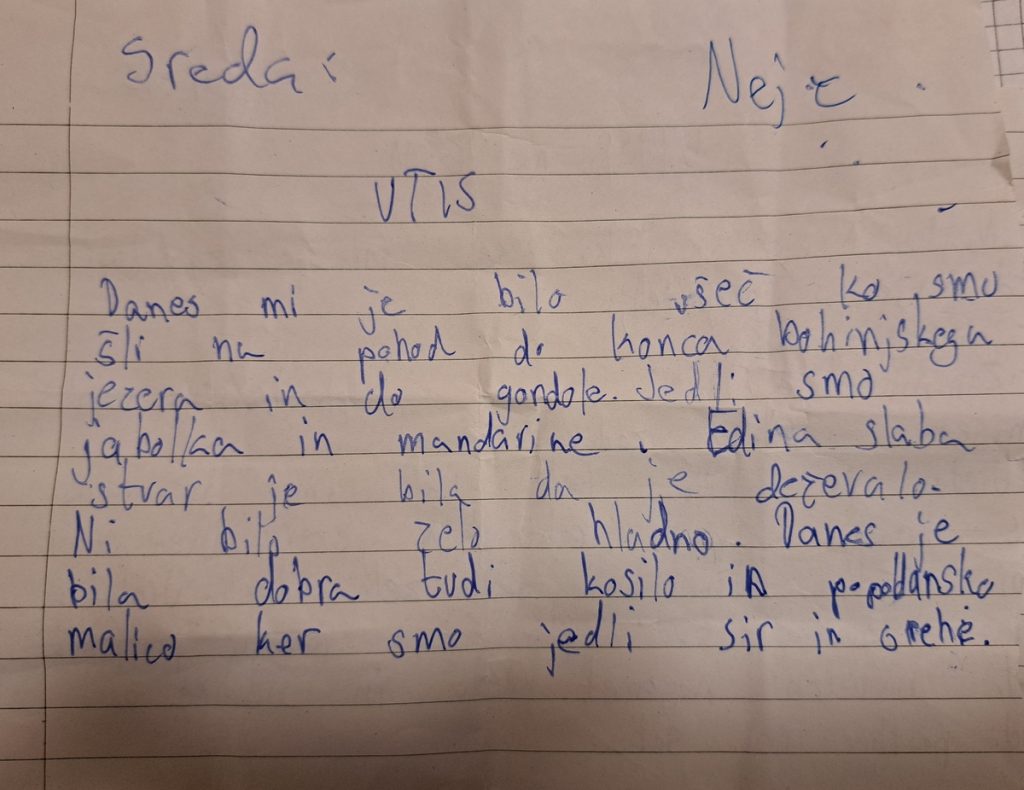 Sreda: Nejc
VTIS
Danes mi je bilo všeč ko smo
šli na pohod do konca bohinjskega
jezera in do gondole. Jedli smo
jabolka in mandarine. Edina slaba
stvar je bila da je dezevalo.
Ni bilo zelo hladno. Danes je
bila dobra tudi kosilo in popoldansko
malico ker smo jedli sir in orehe.